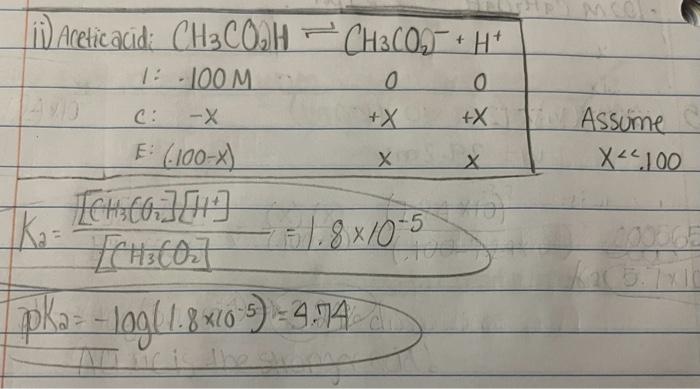 ii) Acetic acid: CH3CO2H ⇌ CH3CO2⁻ + H⁺
I: .100M 0 0
C: -X +X +X Assume
E: (.100-X) X X X<<.100
Ka = [CH3CO2⁻][H⁺] / [CH3CO2] = 1.8 x10⁻⁵
pKa = -log(1.8x10⁻⁵) = 4.74